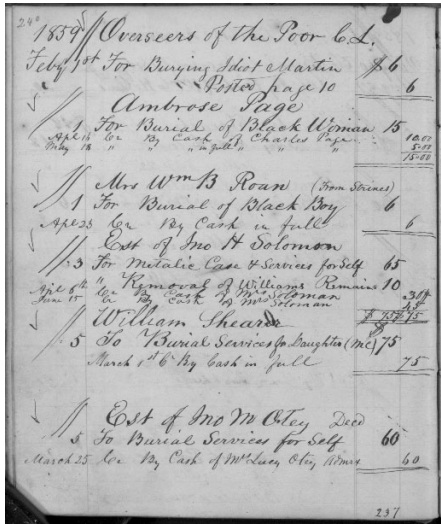 240
1859 Overseers of the Poor C.L.
Feby 1st For Burying Idiot Martin $6
Posted page 10 6
Ambrose Page
1 For Burial of Black Woman 15
Apl 16 Cr By Cash of Charles Page 10.00
May 18 " " " in full " " 5.00
15.00
Mrs Wm B Roan (From Strines)
1 For Burial of Black Boy 6
Apl 23 Cr By Cash in full 6
Est of Jno H Solomon
3 For Metalic Case & Services for Self 65
" Removal of Williams Remains 10
Apl 8th Cr By Cash of Mrs Solomon
June 15 Cr By Cash of Mrs Solomon
$75 $75
William Shearer
5 To Burial Services for Daughter (Mc) $75
March 1st Cr By Cash in full 75
Est of Jno M Otey Decd
5 To Burial Services for Self 60
March 25 Cr By Cash of Mrs Lucy Otey Admrx 60
237